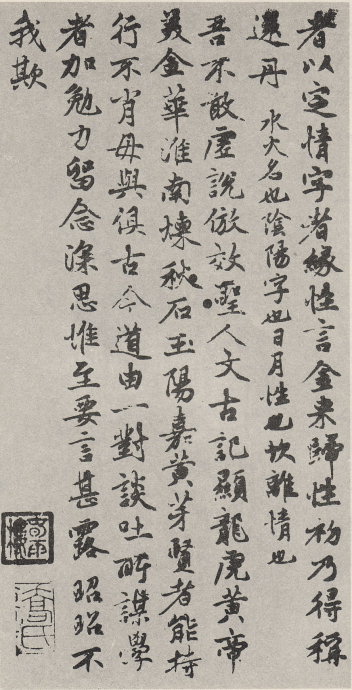 者以定情字者緣性言金来歸性初乃得稱
還丹 水火名也陰陽字也日月性也坎離情也
吾不敢虛說倣效聖人文古記顯龍虎黃帝
美金華淮南煉秋石玉陽嘉黃芽賢者能持
行不肖毋與俱古今道由一對談吐所謀學
者加勉力留念深思惟至要言甚露昭昭不
我欺
喬氏